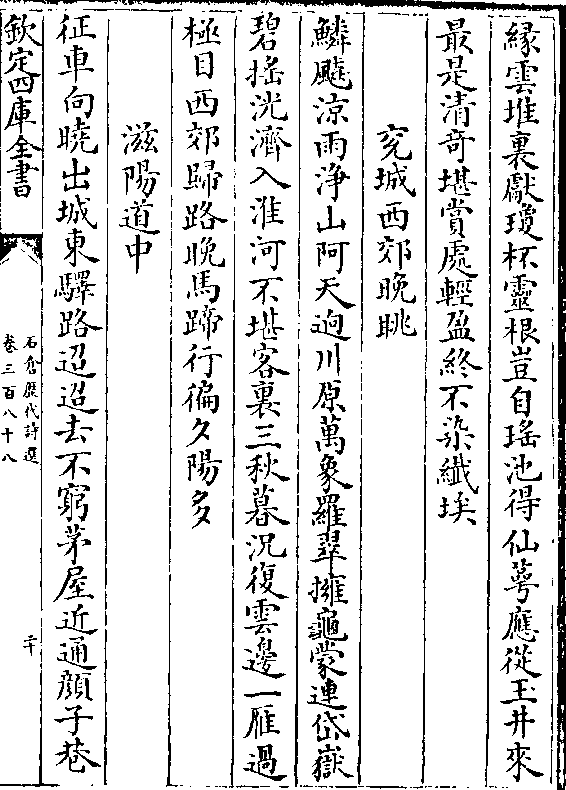 緣雲堆裏獻瓊杯靈根豈自瑤池得仙萼應從玉井來
最是清竒堪賞處輕盈終不染纖埃
兖城西郊晚眺
鱗颷凉雨浄山阿天逈川原萬象羅翠擁龜蒙連岱嶽
碧揺洸濟入淮河不堪客裏三秋暮況復雲邊一雁過
極目西郊歸路晚馬蹄行徧夕陽多
滋陽道中
征車向曉出城東驛路迢迢去不窮茅屋近通顔子巷
欽定四庫全書
石倉歷代詩選
卷三百八十八
二十